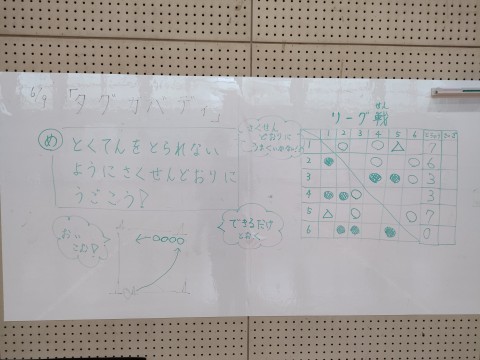 6/9 「タグカバディ」
め とくてんをとられない
ようにさくせんどおりに
うごこう!
さくせん
どおりに
おい
こむ!
できるだけ
とおく
せん
リーグ戦
1 2 3 4 5 6
1 ○ ○ △ 7
2 ● ○ ○ 6
3 ● ● 3
4 ● ● ○ 3
5 △ ○ ○ 7
6 ● ● ● 0